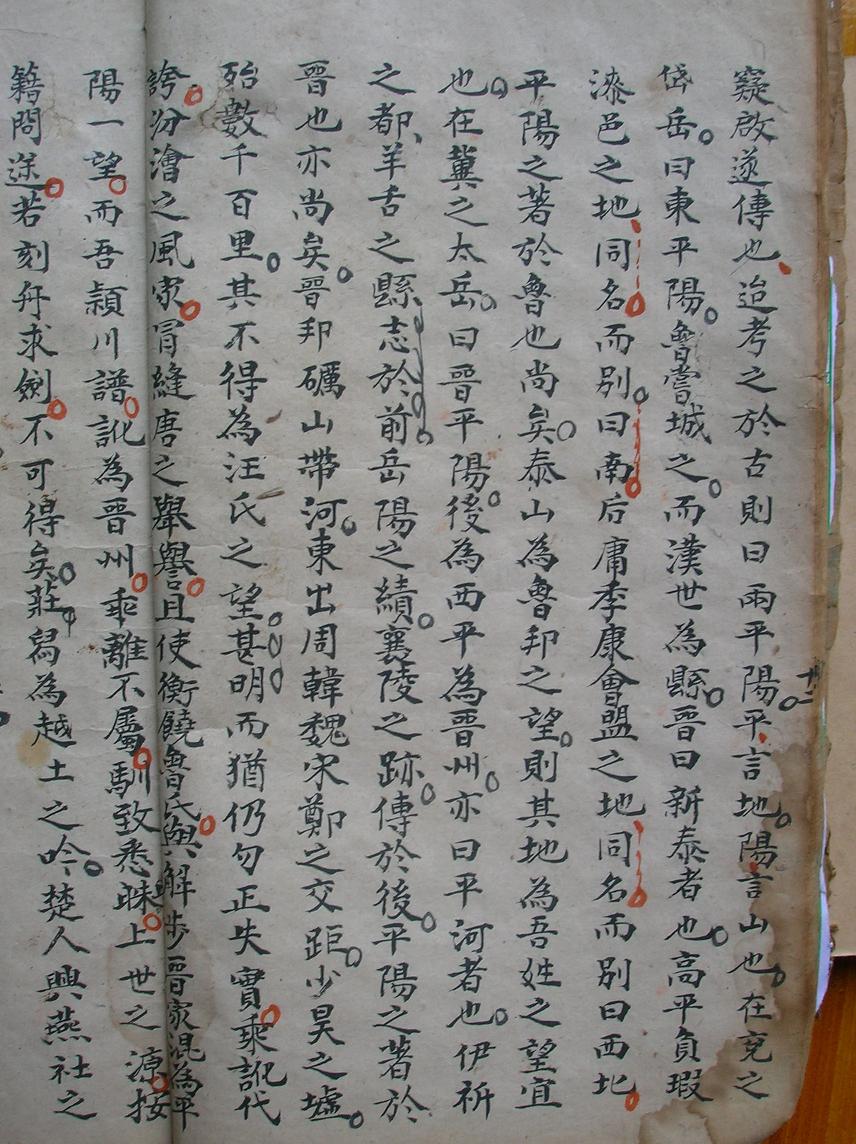 竅啟遂傳也迨考之於古則曰兩平陽平言地陽言山也在兗之
岱岳曰東平陽魯嘗城之而漢世為縣晉曰新泰者也高平負瑕
漆邑之地同名而別曰南后庸季康會盟之地同名而別曰西此
平陽之著於魯也尚矣泰山為魯邦之望則其地為吾姓之望宜
也在冀之太岳曰晉平陽後為西平為晉州亦曰平河者也伊祈
之都羊舌之縣志於前岳陽之績襄陵之跡傳於後平陽之著於
晉也亦尚矣晉邦礪山帶河東出周韓魏宋鄭之交距少昊之墟
殆數千百里其不得為汪氏之望甚明而猶仍勾正失實乘訛代
誇汾澮之風家冒縫唐之舉譽且使衡饒魯氏與解涉晉家混為平
陽一望而吾潁川譜訛為晉州乖離不屬馴致悉昧上世之源按
籍問途若刻舟求劍不可得矣莊舄為越土之吟楚人興燕社之